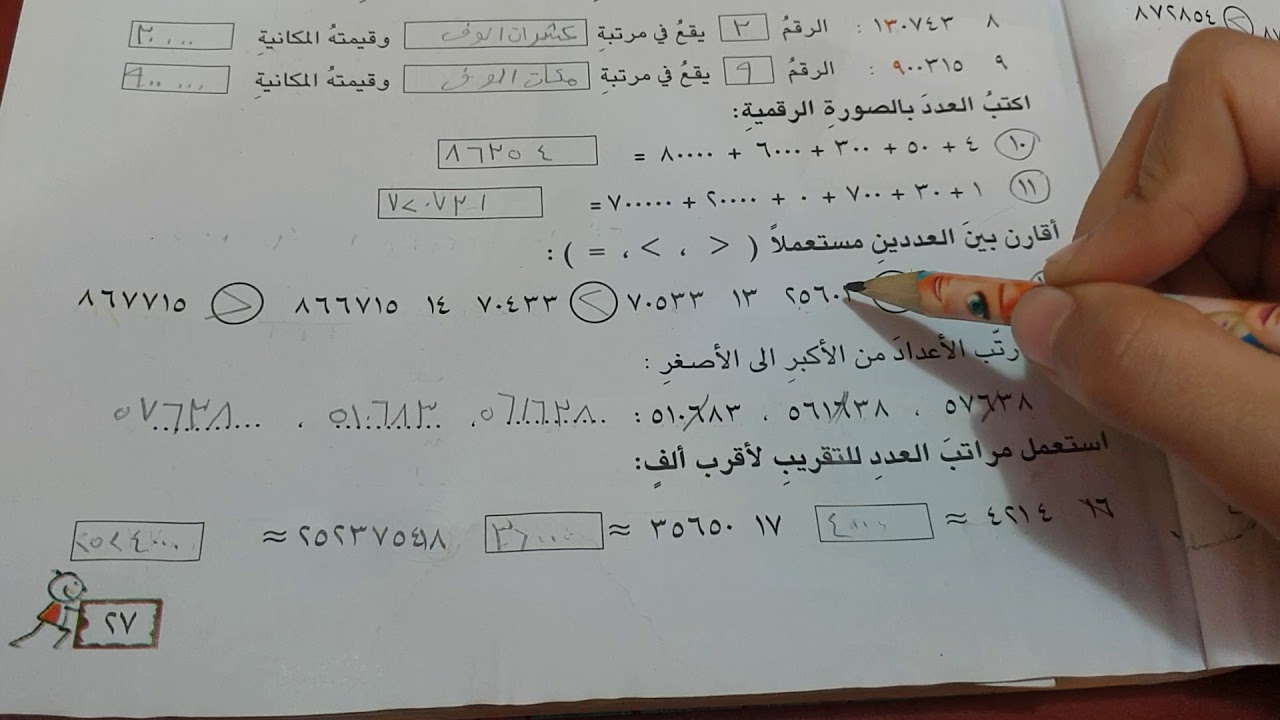 ٨٧٢٨٥٤
٨ ١٣٠٧٤٣ : الرقمُ ٣ يقعُ في مرتبةِ عشرات الوف وقيمتهُ المكانيةِ ٣٠٠٠٠
٩ ٩٠٠٣١٥ : الرقمُ ٩ يقعُ في مرتبةِ مئات الوف وقيمتهُ المكانيةِ ٩٠٠٠٠٠
اكتبُ العددَ بالصورةِ الرقميةِ:
١٠ ٤ + ٥٠ + ٣٠٠ + ٦٠٠٠ + ٨٠٠٠٠ = ٨٦٣٥٤
١١ ١ + ٣٠ + ٧٠٠ + ٠ + ٢٠٠٠٠ + ٧٠٠٠٠٠ = ٧٢٠٧٣١
أقارن بينَ العددينِ مستعملاً ( > ، < ، = ) :
٢٥٦٠ ١٣ ٧٠٥٣٣ > ٧٠٤٣٣ ١٤ ٨٦٦٧١٥ < ٨٦٧٧١٥
رتّب الأعدادَ من الأكبرِ الى الأصغرِ :
٥٧٦٣٨ ، ٥٦١٦٣٨ ، ٥١٠٦٨٣ : ٥٦١٦٣٨ ، ٥١٠٦٨٣ ، ٥٧٦٣٨
استعمل مراتبَ العددِ للتقريبِ لأقرب ألفٍ:
١٦ ٤٢١٤ ≈ ٤٠٠٠ ١٧ ٣٥٦٥٠ ≈ ٣٦٠٠٠ ≈
٢٧